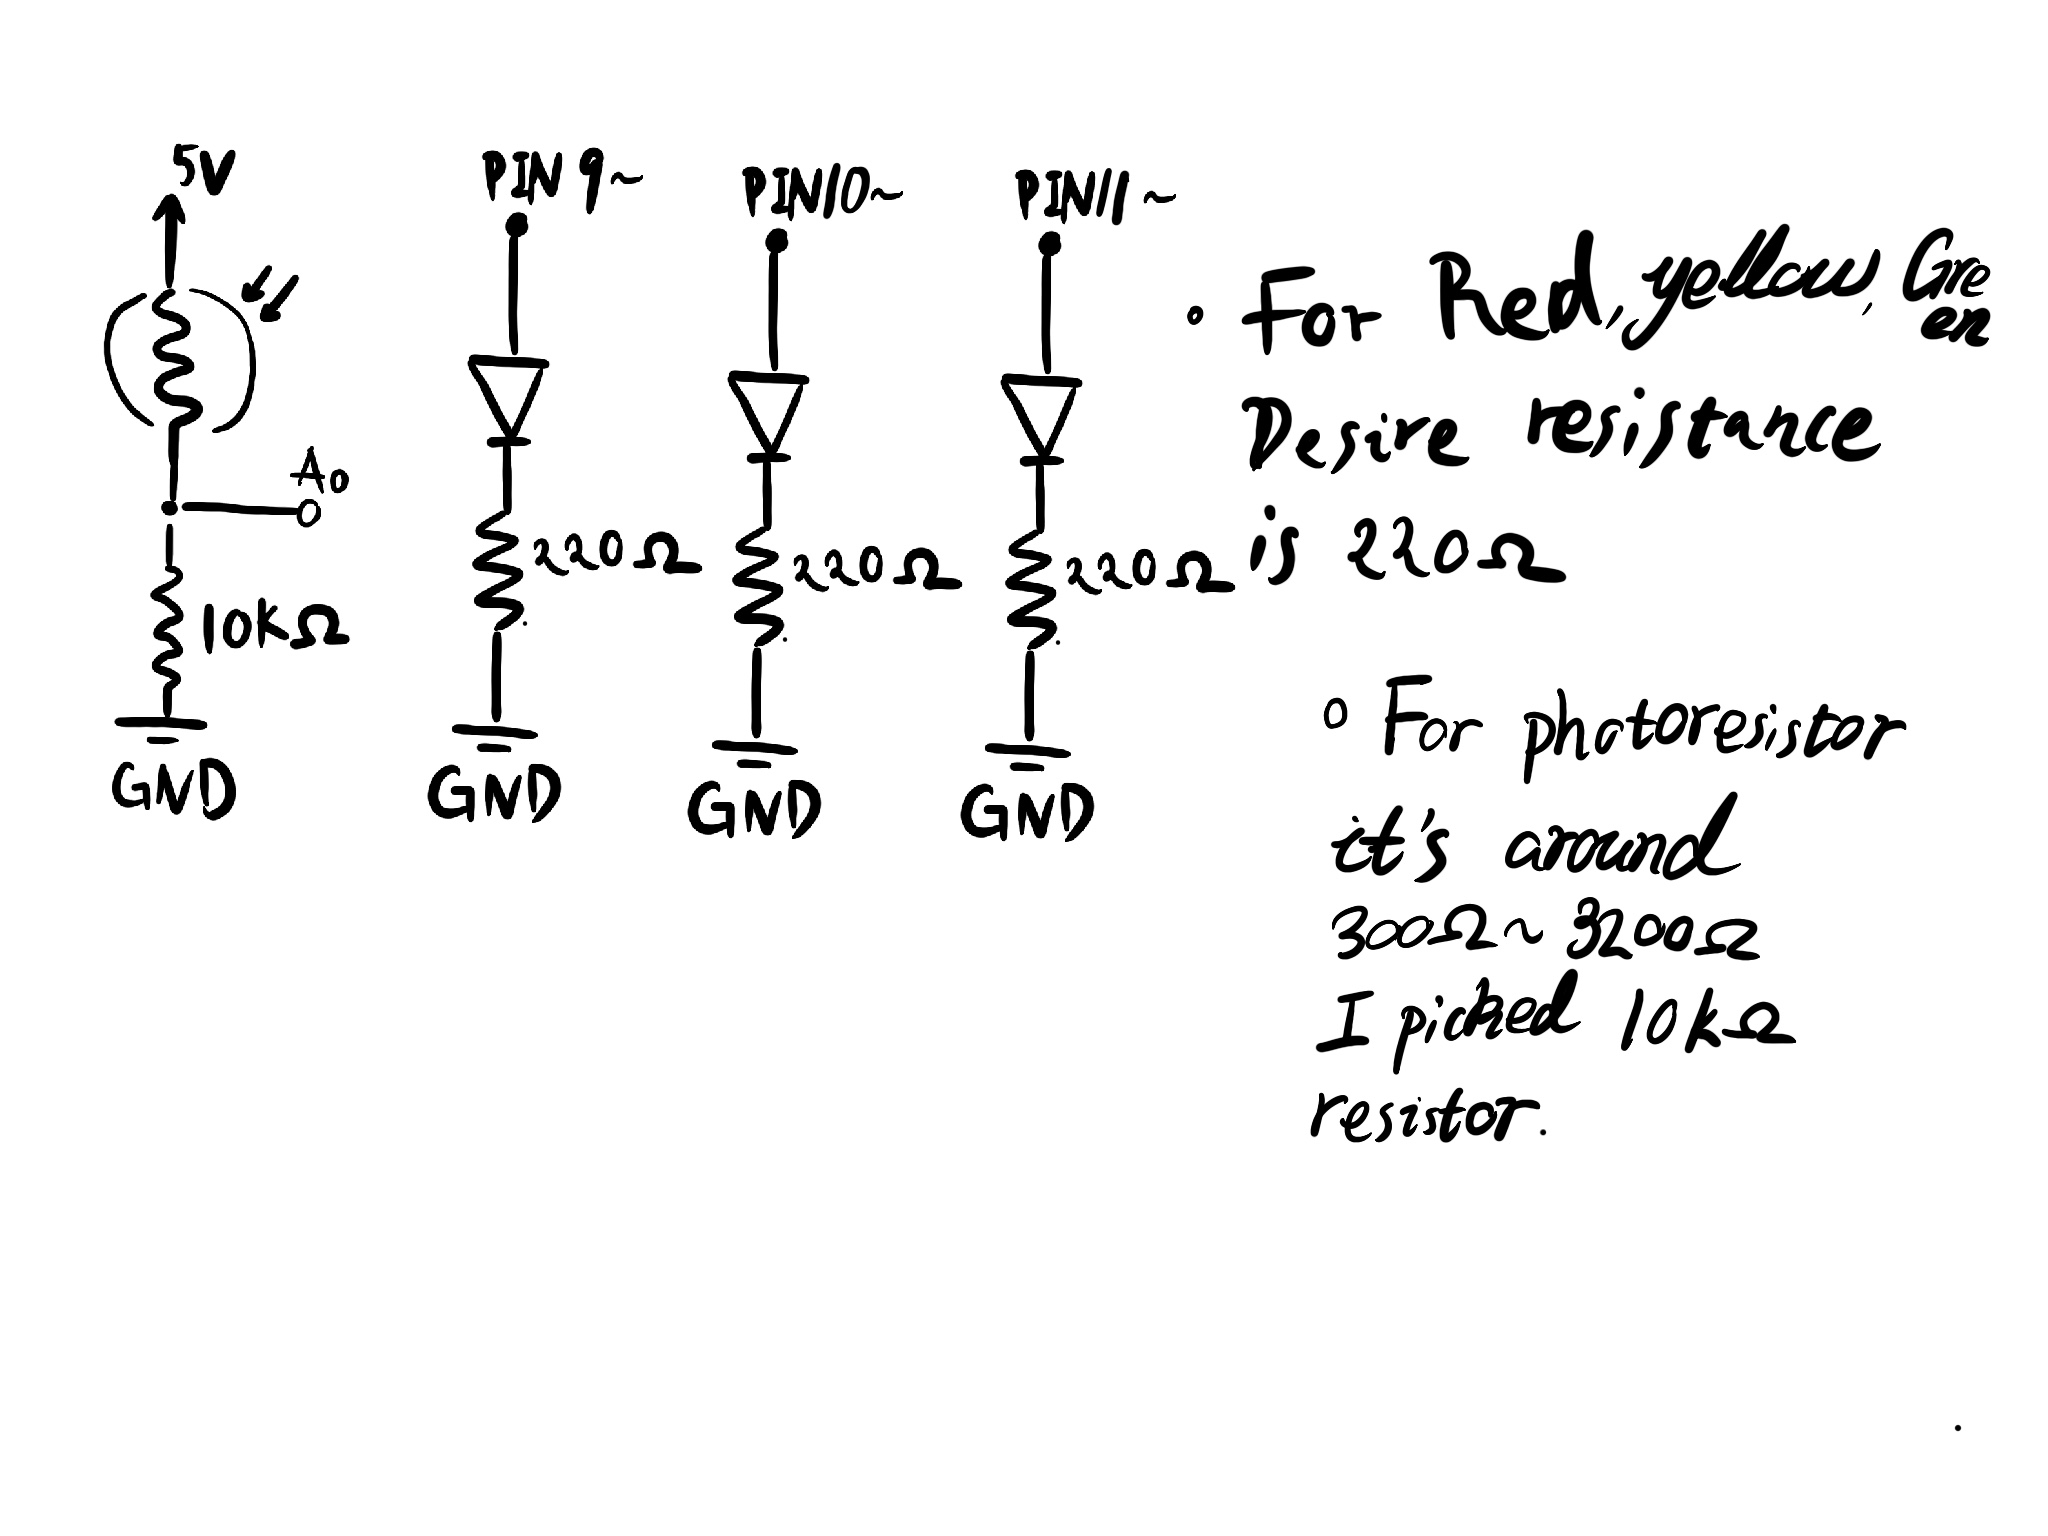 5V
A0
10kΩ
GND
PIN 9~
220Ω
GND
PIN10~
220Ω
GND
PIN11~
220Ω
GND
For Red, yellow, Gre
en
Desire resistance
is 220Ω
For photoresistor
it's around
300Ω ~ 3200Ω
I picked 10kΩ
resistor.